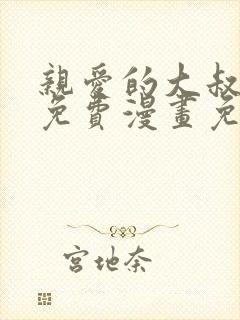 親愛的大叔
免費漫畫免
宮地奈